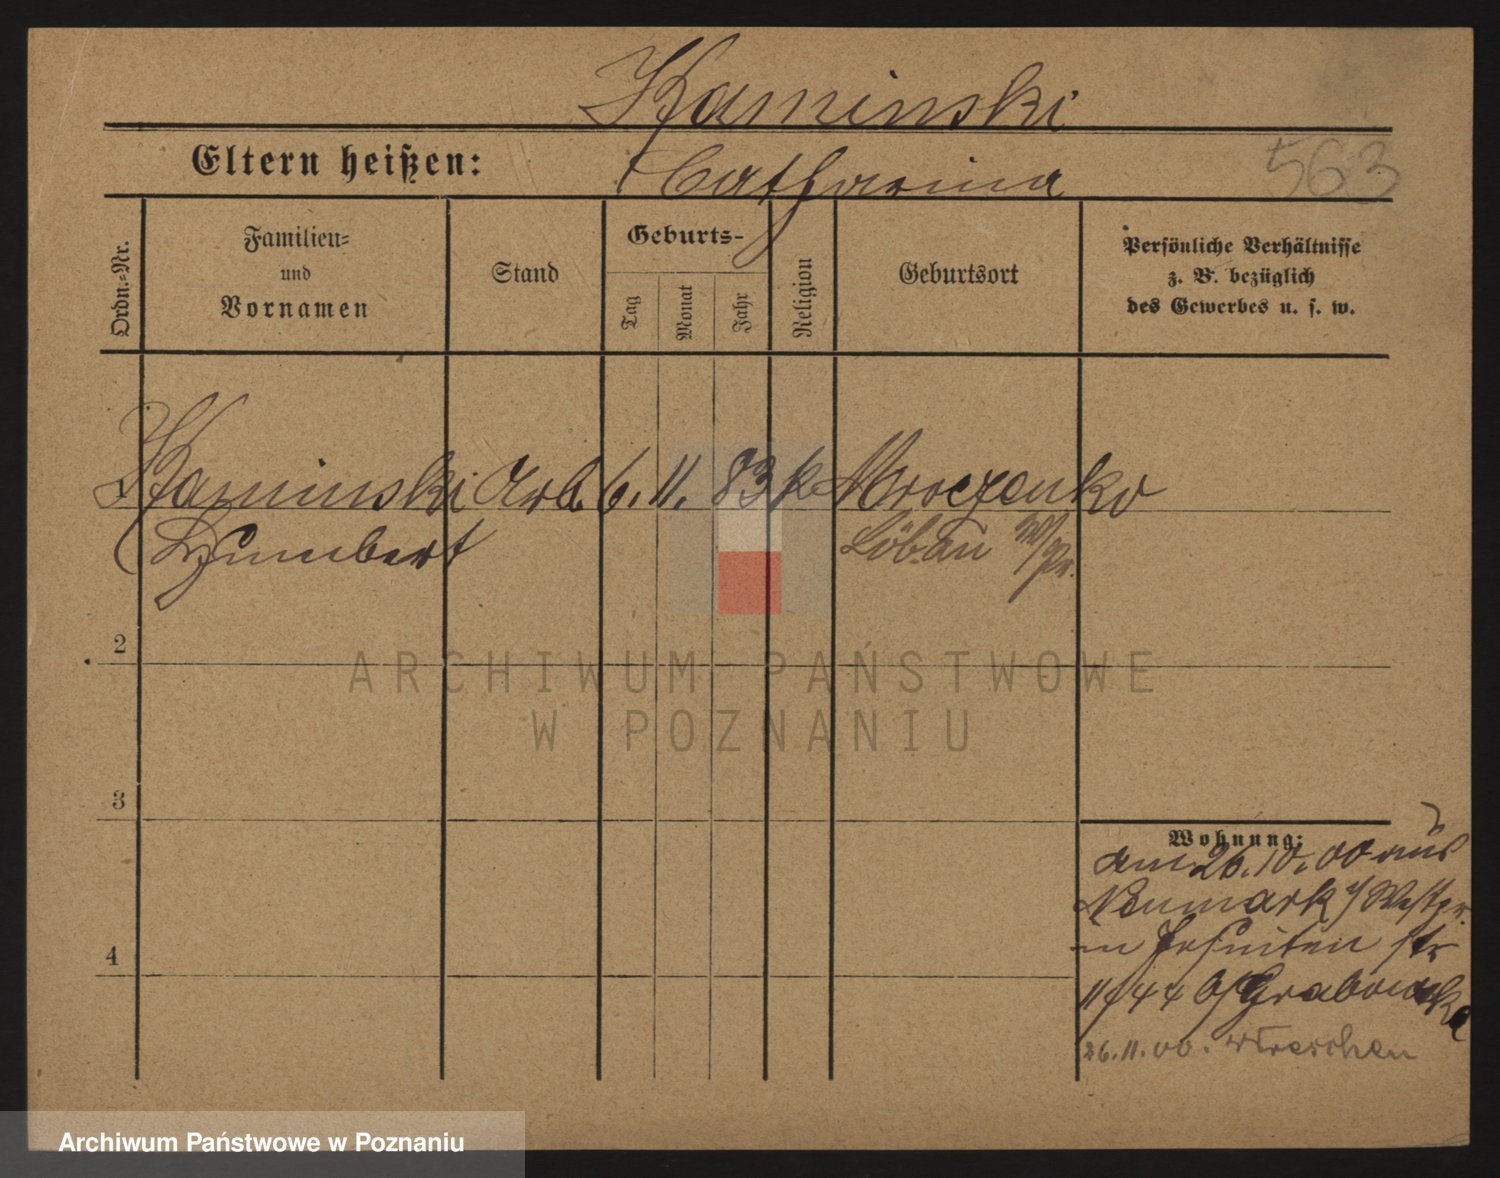 Kaminski
Eltern heißen:
Catharina
563
Ordn.-Nr.
Familien-
und
Vornamen
Stand
Geburts-
Tag
Monat
Jahr
Religion
Geburtsort
Persönliche Verhältnisse
z. B. bezüglich
des Gewerbes u. s. w.
Kaminski Arb. 6. 11. 83 k. Mroczenko
Humbert
Löbau W/Pr.
2
ARCHIWUM PAŃSTWOWE
W POZNANIU
3
Wohnung:
am 26.10.00 aus
Neumark i/ Westpr.
in Jesuiten str
11 b/ Grabowska
4
26.11.00. Wreschen
Archiwum Państwowe w Poznaniu